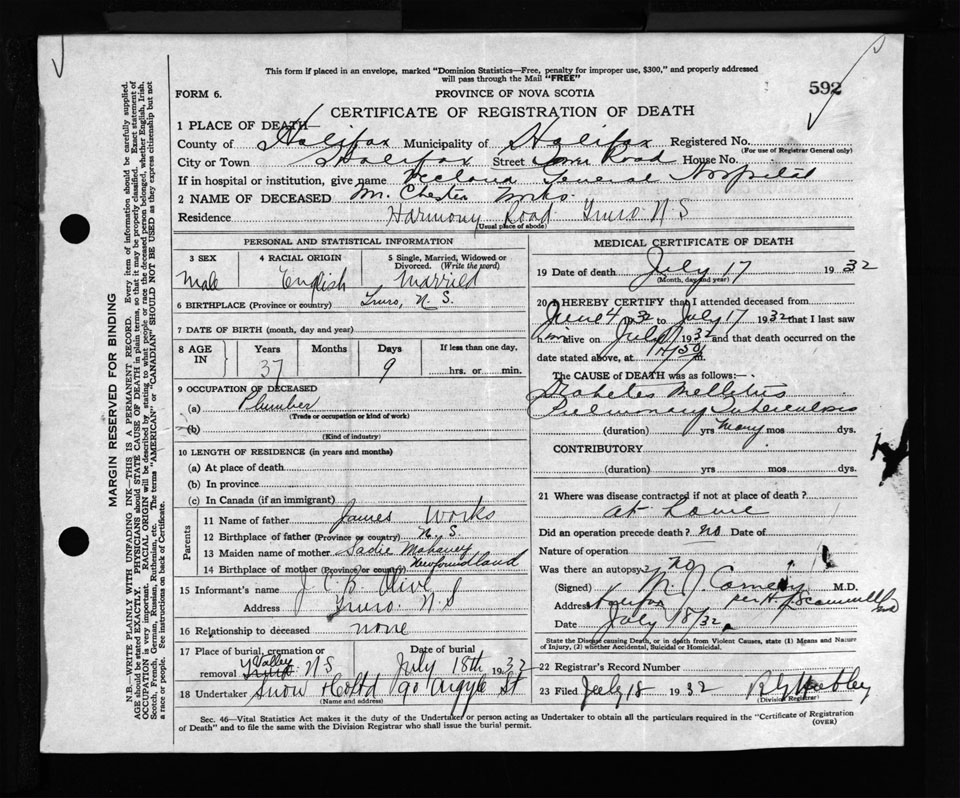 This form if placed in an envelope, marked "Dominion Statistics—Free, penalty for improper use, $300," and properly addressed
will pass through the Mail "FREE"
FORM 6.
PROVINCE OF NOVA SCOTIA
592
CERTIFICATE OF REGISTRATION OF DEATH
1 PLACE OF DEATH
County of Halifax Municipality of Halifax Registered No.
(For use of Registrar General only)
City or Town Halifax Street Tower Road House No.
If in hospital or institution, give name Victoria General Hospital
2 NAME OF DECEASED M. Chester Works
Residence Harmony Road Truro N S
(Usual place of abode)
PERSONAL AND STATISTICAL INFORMATION
3 SEX
Male
4 RACIAL ORIGIN
English
5 Single, Married, Widowed or
Divorced. (Write the word)
Married
6 BIRTHPLACE (Province or country) Truro, N. S.
7 DATE OF BIRTH (month, day and year)
8 AGE IN
Years Months Days If less than one day,
37 9 hrs. or min.
9 OCCUPATION OF DECEASED
(a) Plumber
(Trade or occupation or kind of work)
(b)
(Kind of industry)
10 LENGTH OF RESIDENCE (in years and months)
(a) At place of death
(b) In province
(c) In Canada (if an immigrant)
Parents
11 Name of father James Works
12 Birthplace of father (Province or country) N. S.
13 Maiden name of mother Sadie Mahaney
14 Birthplace of mother (Province or country) Newfoundland
15 Informant's name J. C. B. Olive
Address Truro. N. S
16 Relationship to deceased none
17 Place of burial, cremation or
removal Valley Truro N S
Date of burial
July 18th 1932
18 Undertaker Snow & Co Ltd 90 Argyle St
(Name and address)
MEDICAL CERTIFICATE OF DEATH
19 Date of death July 17 1932
(Month, day and year)
20 I HEREBY CERTIFY that I attended deceased from
June 4 1932 to July 17 1932 that I last saw
him alive on July 17 1932 and that death occurred on the
date stated above, at m.
The CAUSE of DEATH was as follows:—
Diabetes Mellitus
Pulmonary Tuberculosis
(duration) yrs many mos dys.
CONTRIBUTORY
(duration) yrs mos dys.
21 Where was disease contracted if not at place of death?
at home
Did an operation precede death? no Date of
Nature of operation
Was there an autopsy? no
(Signed) M. J. M.D.
Address Halifax per H. J. Scammell
Date July 18/32
State the Disease causing Death, or in death from Violent Causes, state (1) Means and Nature
of Injury, (2) whether Accidental, Suicidal or Homicidal.
22 Registrar's Record Number
23 Filed July 18 1932
(Division Registrar)
Sec. 46—Vital Statistics Act makes it the duty of the Undertaker or person acting as Undertaker to obtain all the particulars required in the "Certificate of Registration
of Death" and to file the same with the Division Registrar who shall issue the burial permit.
(OVER)
MARGIN RESERVED FOR BINDING
N.B.—WRITE PLAINLY WITH UNFADING INK—THIS IS A PERMANENT RECORD. Every item of information should be carefully supplied.
AGE should be stated EXACTLY. PHYSICIANS should STATE CAUSE OF DEATH in plain terms, so that it may be properly classified. Exact statement of
OCCUPATION is very important. RACIAL ORIGIN will be described by stating to what people or race the deceased person belonged, whether English, Irish,
Scotch, French, German, Russian, Ruthenian, etc. The terms "AMERICAN" or "CANADIAN" SHOULD NOT BE USED as they express citizenship but not
a race or people. See instructions on back of Certificate.